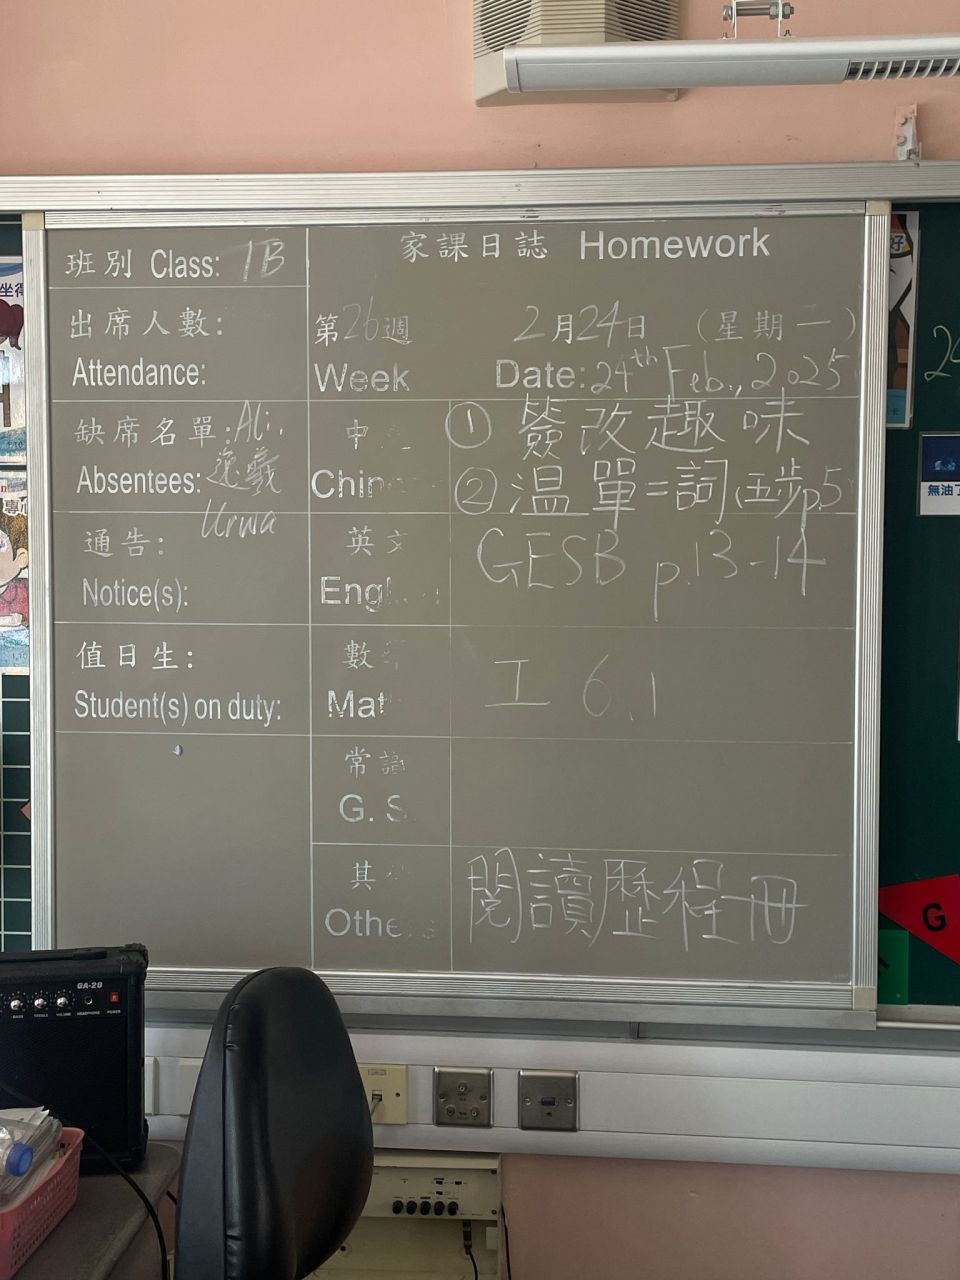 班別 Class: 1B
出席人數:
Attendance:
缺席名單: Ali,
Absentees: 逸羲
Urwa
通告:
Notice(s):
值日生:
Student(s) on duty:
家課日誌 Homework
第26週 2月24日 (星期一)
Week Date: 24th Feb., 2025
中
Chin
① 簽改趣味
② 溫單=詞 p.5
英文
Engl
GESB p.13-14
數
Mat
工 6.1
常識
G. S.
其
Others
閱讀歷程冊
GA-20
BASS TREBLE VOLUME HEADPHONE POWER
好
坐得
24
無油
G